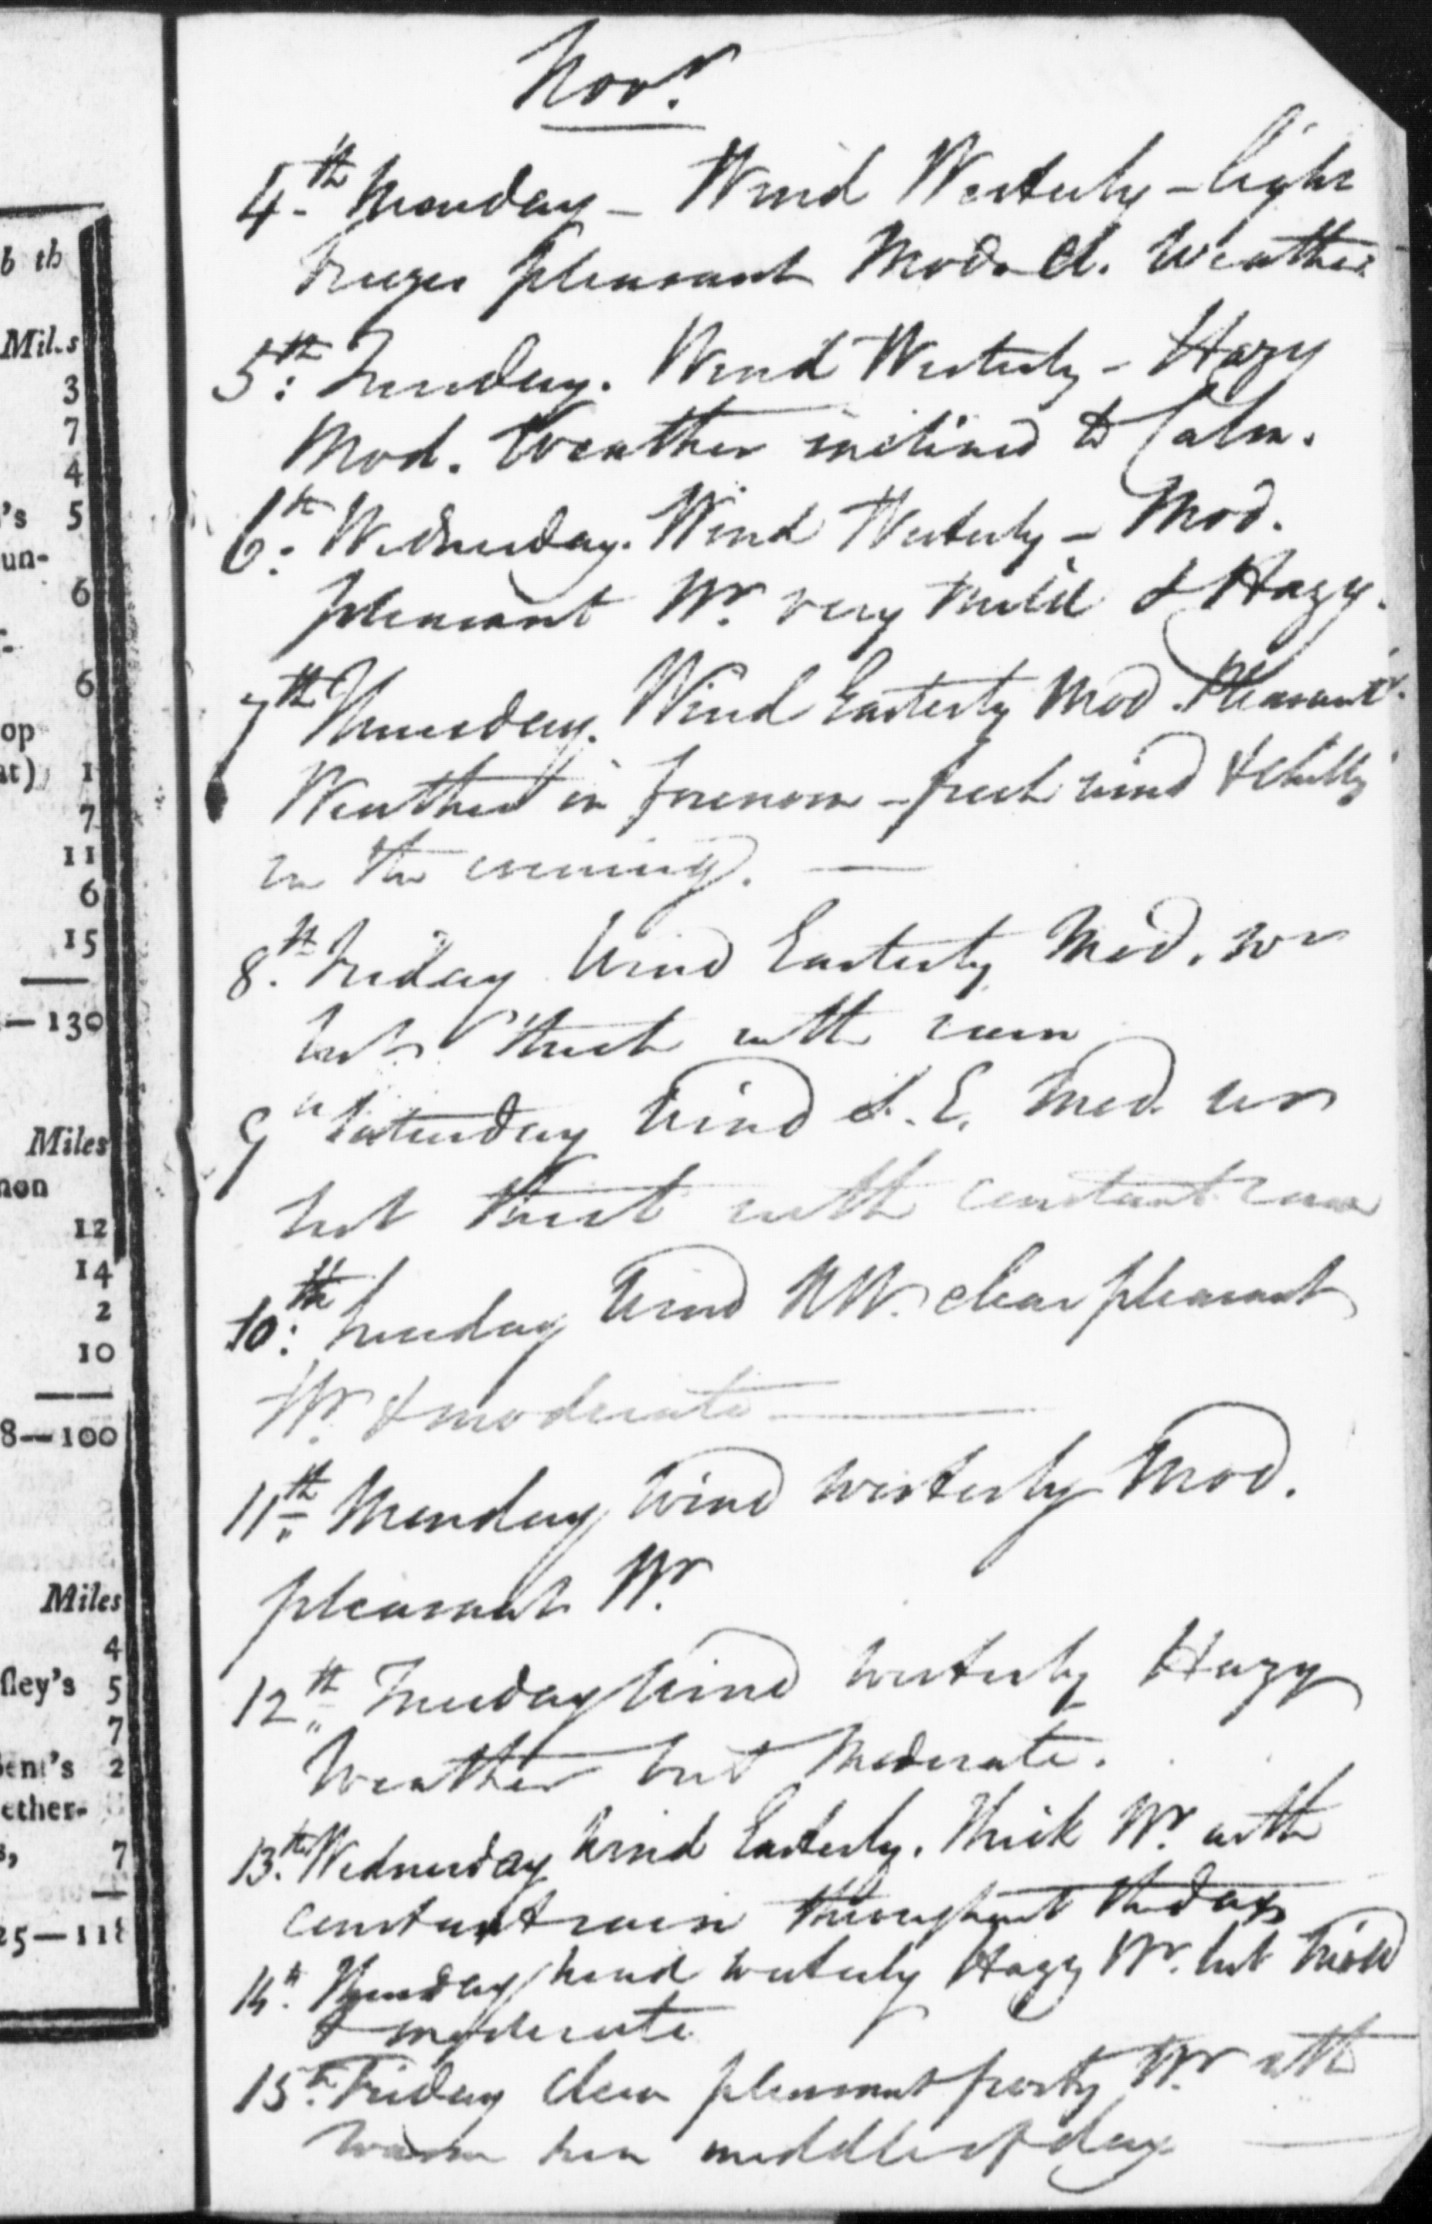 b th
Miles
3
7
4
's 5
un-
6
6
op
at) 1
7
11
6
15
—130
Miles
non
12
14
2
10
8—100
Miles
4
fley's 5
7
Bent's 2
ether-
s, 7
25—118
Novr.
4th Monday – Wind Westerly – light
breezes pleasant Mod. Cl. Weather
5th: Tuesday. Wind Westerly – Hazy
Mod. Weather inclined to Calm.
6th. Wednesday. Wind Westerly – Mod.
pleasant Wr. very mild & Hazy.
7th Thursday. Wind Easterly Mod. Pleasant
Weather in forenoon – fresh wind & chilly
in the evening. —
8th. Friday Wind Easterly Mod. wr
but thick with rain
9th Saturday Wind S.E. Mod. wr
but thick with constant rain
10th: Sunday Wind NW. clear pleasant
Wr. & moderate —
11th Monday Wind westerly Mod.
pleasant Wr.
12th Tuesday Wind westerly Hazy
Weather but Moderate.
13th. Wednesday Wind Easterly. Thick Wr. with
constant rain throughout the day
14th. Thursday wind westerly Hazy Wr. but mild
& moderate
15th. Friday clear pleasant frosty Wr. with
warm sun middle of day —